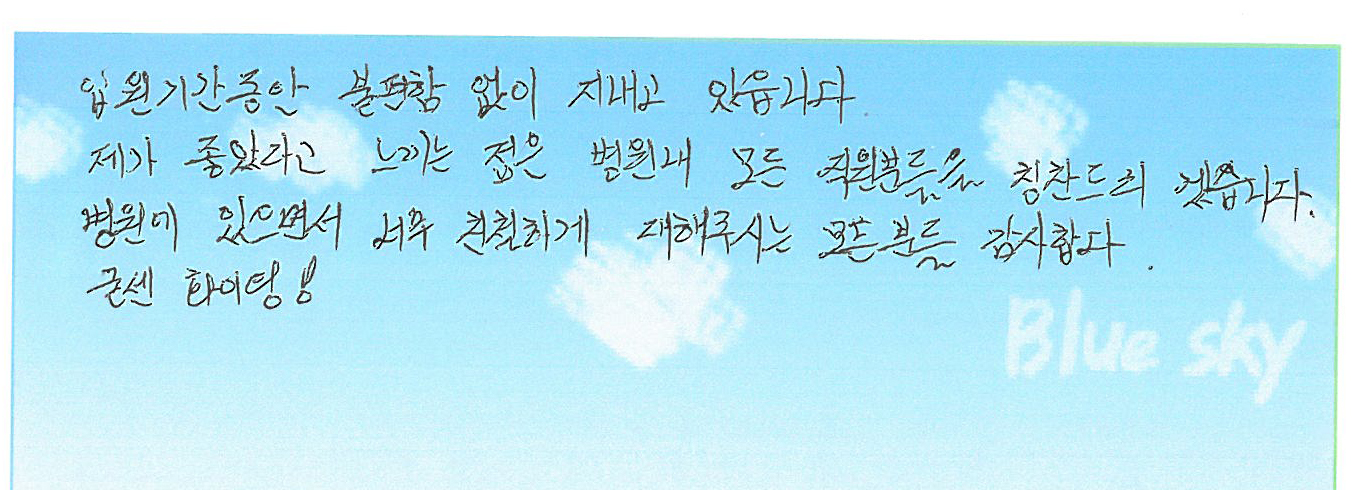 입원기간중안 불편함 없이 지내고 있읍니다
제가 좋았다고 느끼는 점은 병원내 모든 직원분들을 칭찬드리 겠읍니다.
병원에 있으면서 너무 친절하게 대해주시는 모든분들 감사합다.
굳센 화이팅!
Blue sky